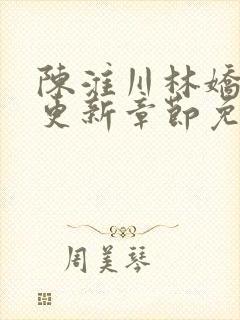 陳淮川林嬌
更新章節免
周美琴